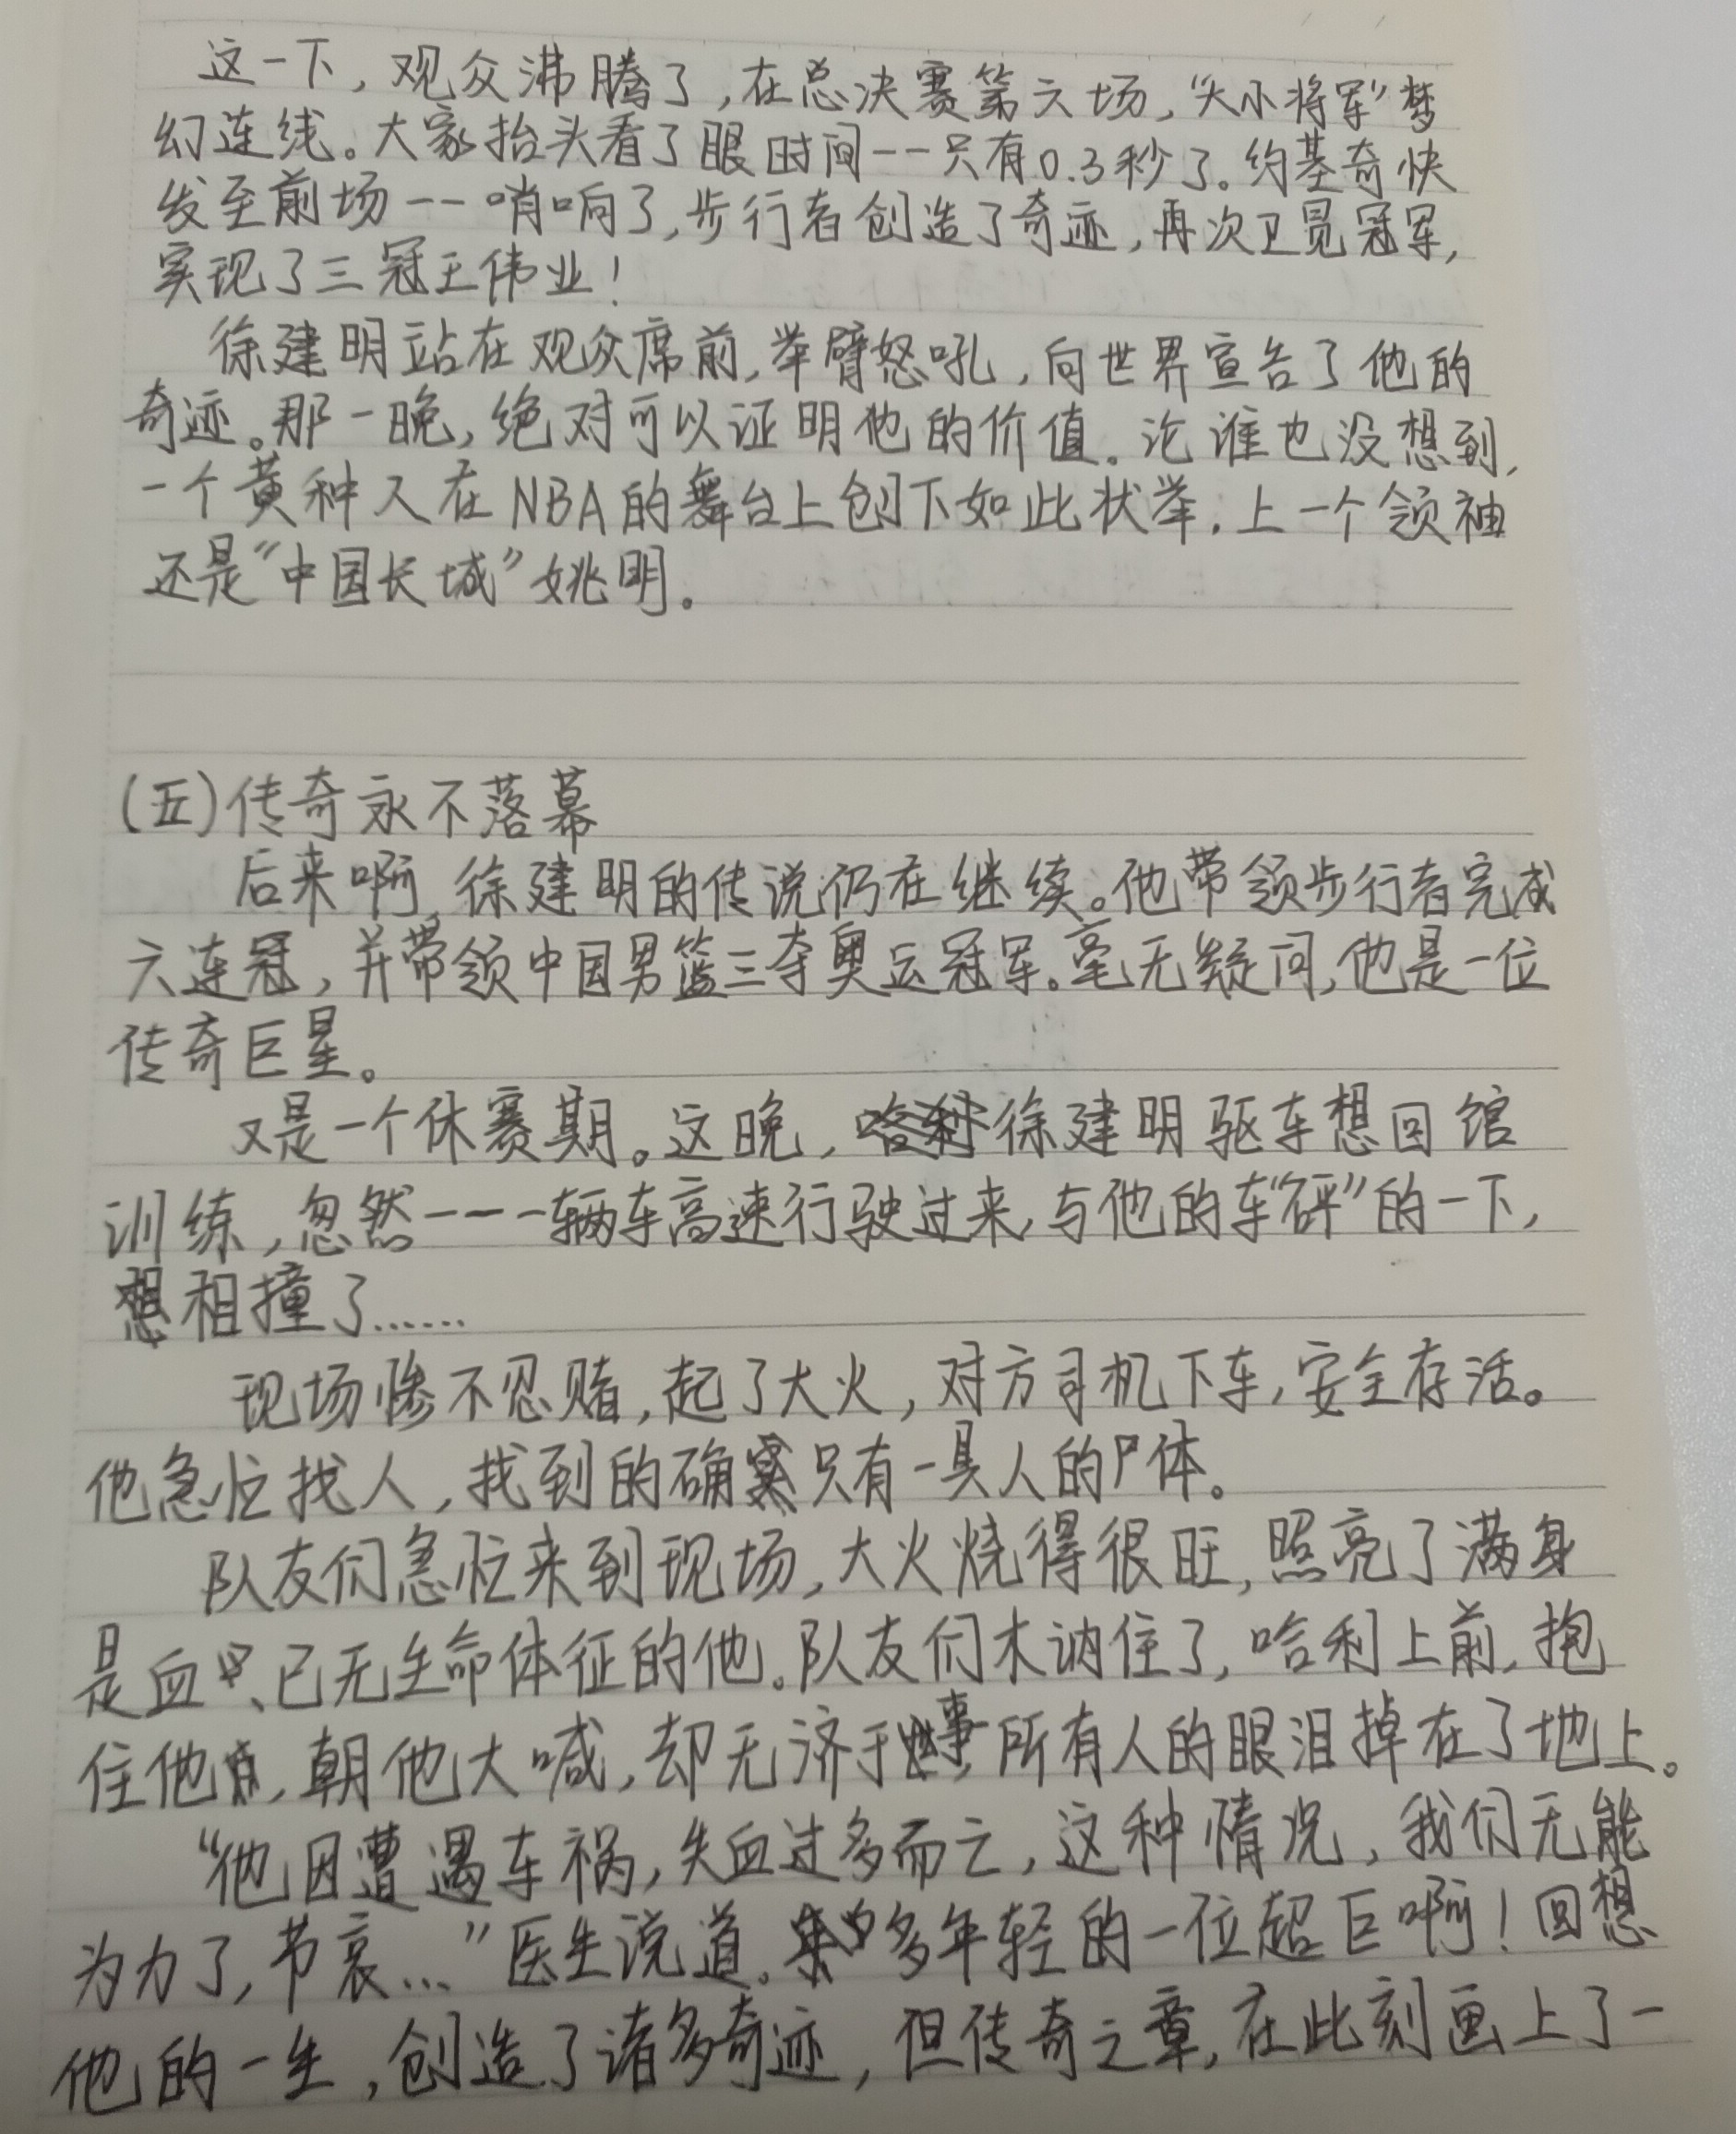 这一下，观众沸腾了，在总决赛第六场，“大小将军”梦
幻连线。大家抬头看了眼时间--只有0.3秒了。约基奇快
发至前场--哨响了，步行者创造了奇迹，再次卫冕冠军，
实现了三冠王伟业！
徐建明站在观众席前，举臂怒吼，向世界宣告了他的
奇迹。那一晚，绝对可以证明他的价值。论谁也没想到，
一个黄种人在NBA的舞台上创下如此状举，上一个领袖
还是“中国长城”姚明。
(五)传奇永不落幕
后来啊，徐建明的传说仍在继续。他带领步行者完成
六连冠，并带领中国男篮三夺奥运冠军。毫无疑问，他是一位
传奇巨星。
又是一个休赛期。这晚，徐建明驱车想回馆
训练，忽然--一辆车高速行驶过来，与他的车“砰”的一下，
相撞了……
现场惨不忍赌，起了大火，对方司机下车，安全存活。
他急忙找人，找到的确只有一具人的尸体。
队友们急忙来到现场，大火烧得很旺，照亮了满身
是血、已无生命体征的他。队友们木讷住了，哈利上前，抱
住他，朝他大喊，却无济于事，所有人的眼泪掉在了地上。
“他因遭遇车祸，失血过多而亡，这种情况，我们无能
为力了，节哀…”医生说道。多年轻的一位超巨啊！回想
他的一生，创造了诸多奇迹，但传奇之章，在此刻画上了一